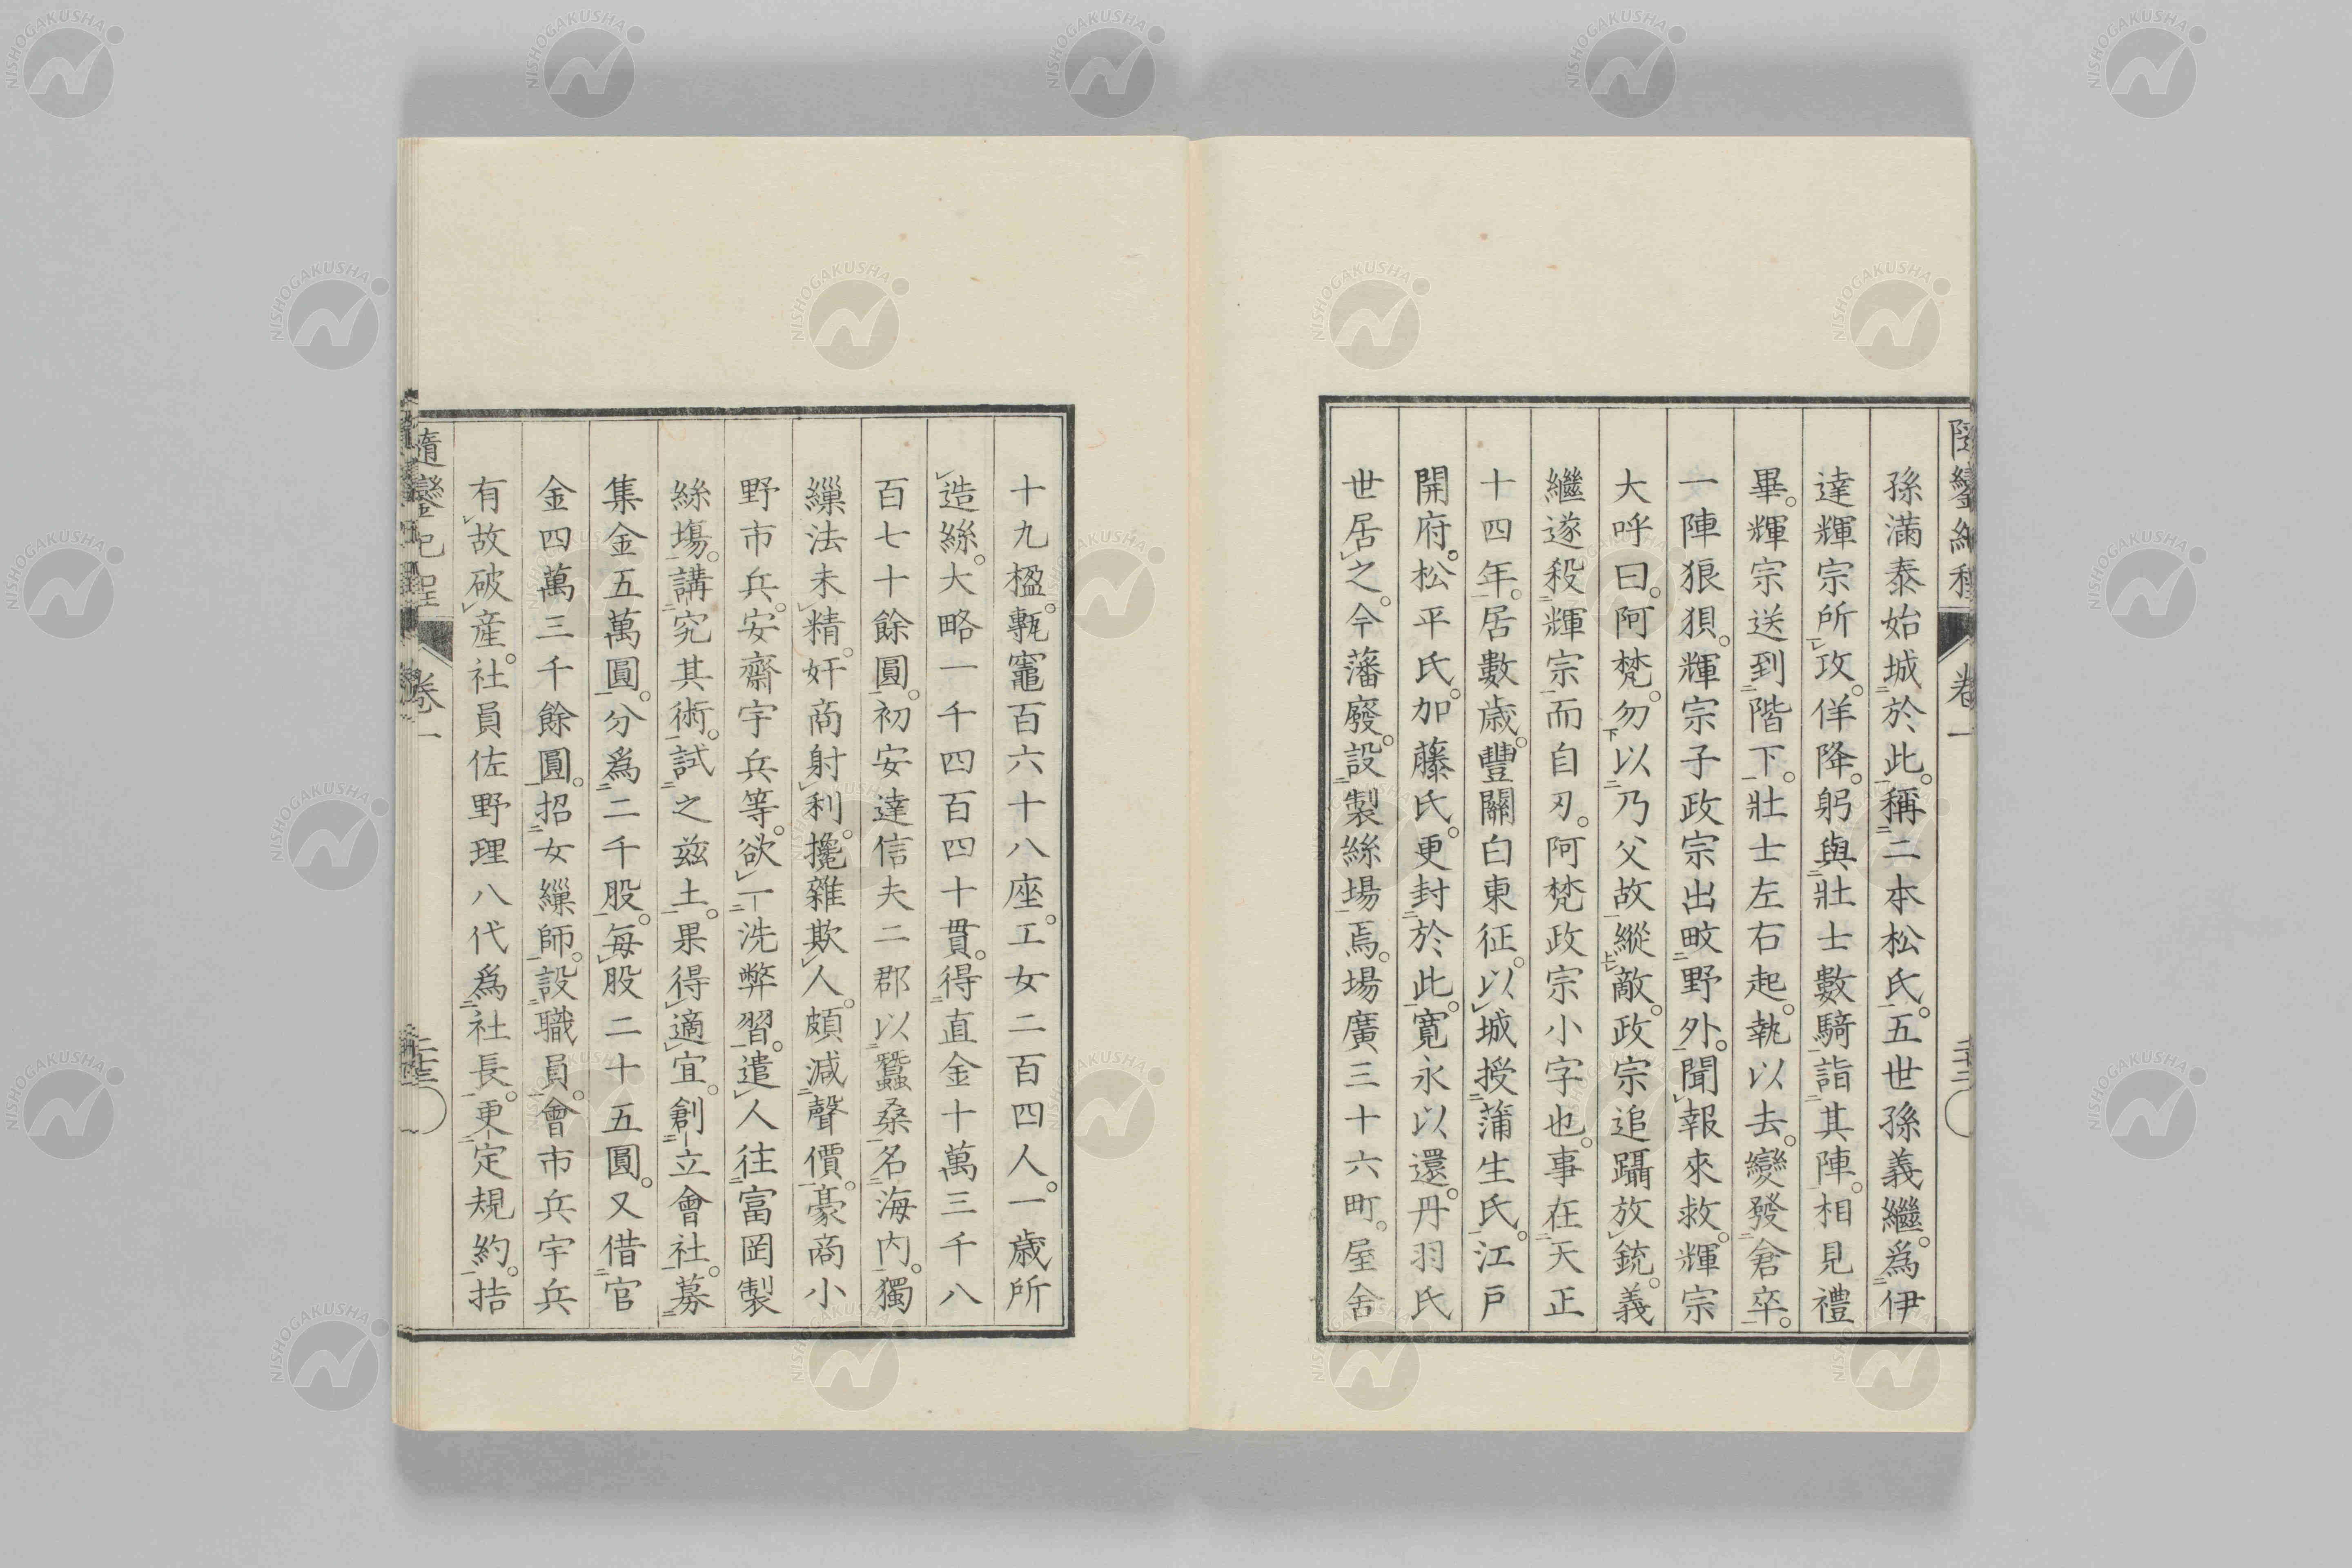 孫滿泰始城於此。稱二本松氏。五世孫義繼。爲伊
達輝宗所攻。佯降。躬與壯士數騎詣其陣。相見禮
畢。輝宗送到階下。壯士左右起。執以去。變發倉卒。
一陣狼狽。輝宗子政宗出畋野外。聞報來救。輝宗
大呼曰。阿梵。勿以乃父故縱敵。政宗追躡放銃。義
繼遂殺輝宗而自刃。阿梵政宗小字也。事在天正
十四年。居數歲。豐關白東征。以城授蒲生氏。江戶
開府。松平氏。加藤氏。更封於此。寬永以還。丹羽氏
世居之。今藩廢。設製絲場焉。場廣三十六町。屋舍
十九楹。甎竈百六十八座。工女二百四人。一歲所
造絲。大略一千四百四十貫。得直金十萬三千八
百七十餘圓。初安達信夫二郡以蠶桑名海內。獨
繅法未精。奸商射利。攙雜欺人。頗減聲價。豪商小
野市兵。安齋宇兵等。欲一洗弊習。遣人往富岡製
絲塲。講究其術。試之玆土。果得適宜。創立會社。募
集金五萬圓。分爲二千股。每股二十五圓。又借官
金四萬三千餘圓。招女繅師。設職員。會市兵宇兵
有故破產。社員佐野理八代爲社長。更定規約。拮
卷一
NISHOGAKUSHA